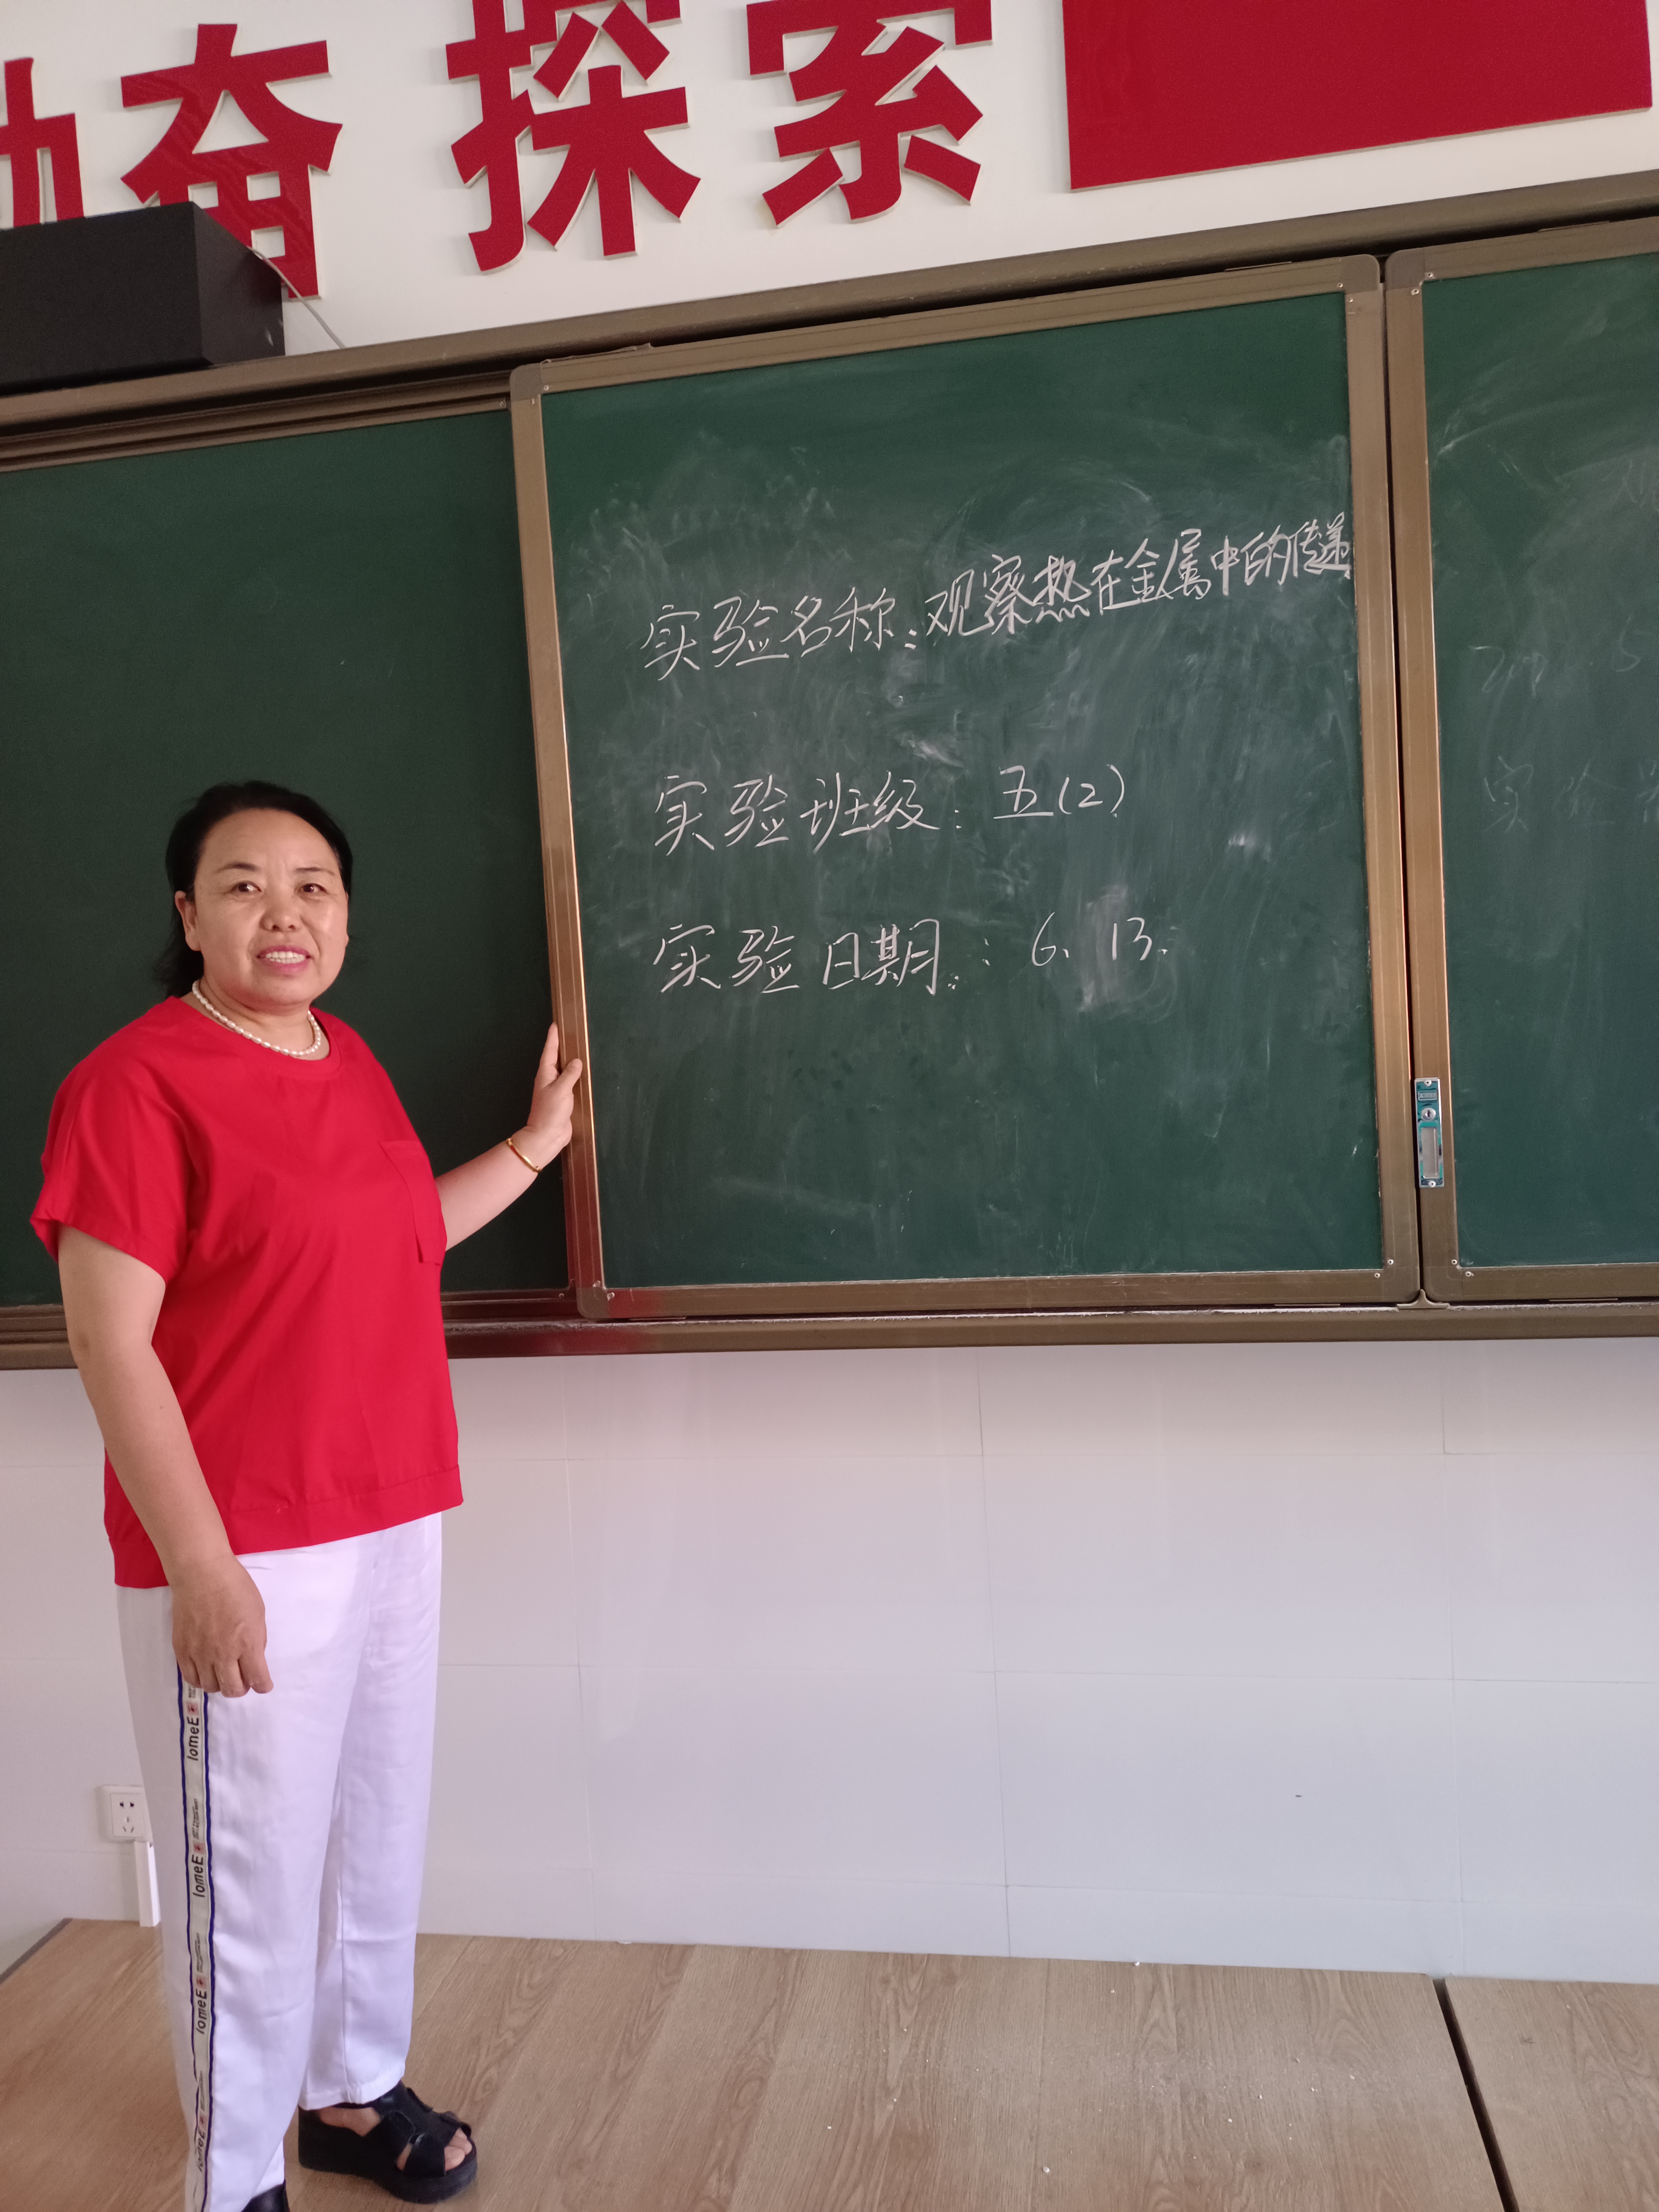 奋探索
实验名称:观察热在金属中的传递
实验班级:五(2)
实验日期:6.13.
lomeE
lomeE
lomeE
lomeE